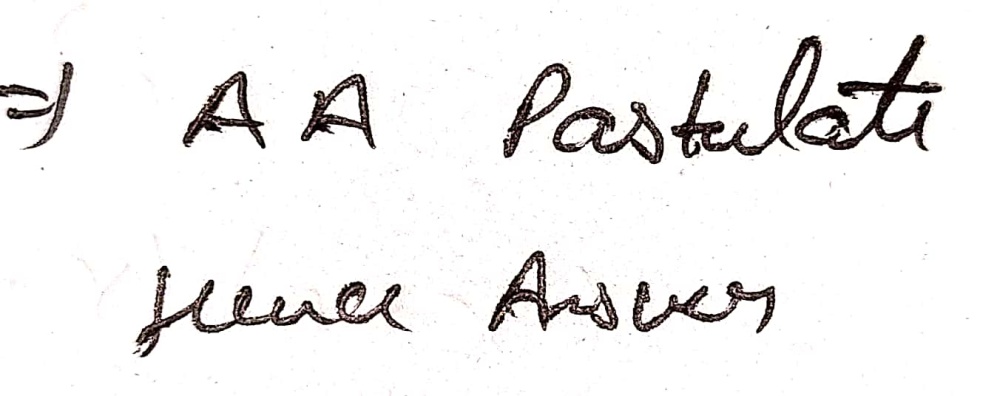 ⇒ AA Postulate
Hence Answer